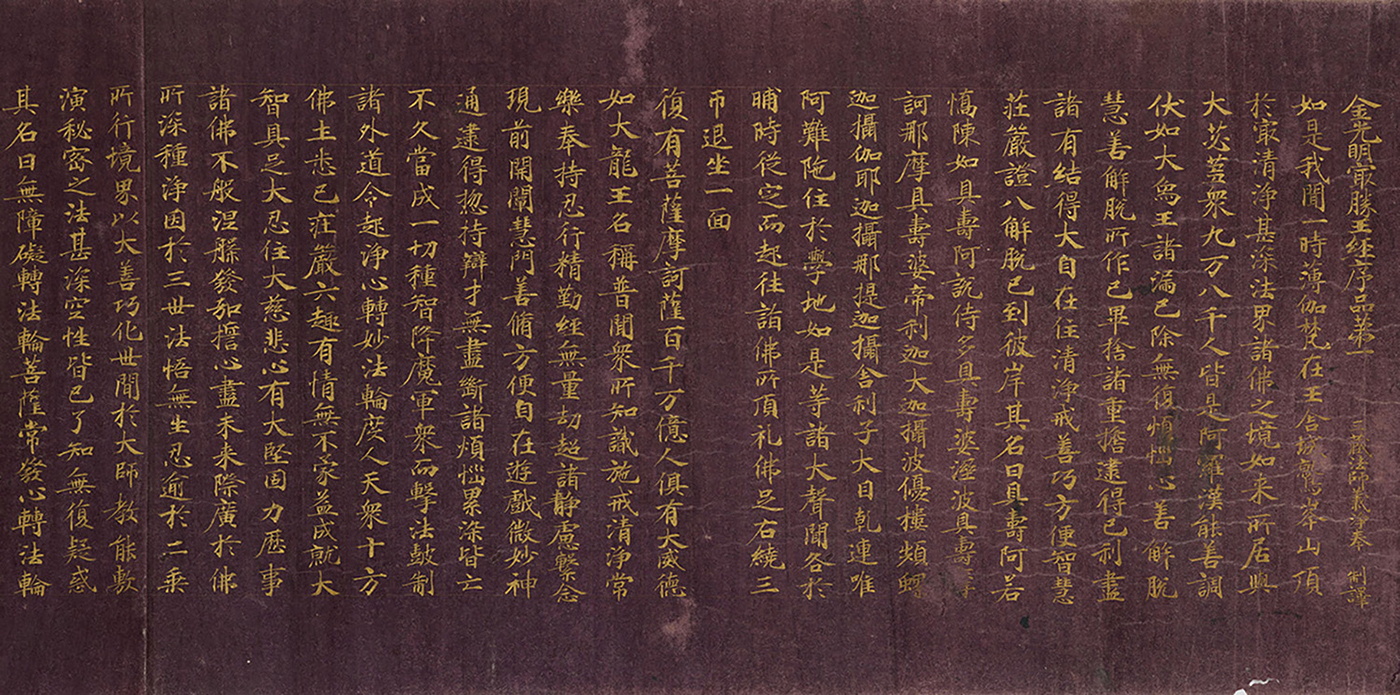 金光明㝡勝王経序品第一 三蔵法師義淨奉 制譯
如是我聞一時薄伽梵在王舍城鷲峯山頂
於㝡清淨甚深法界諸佛之境如来所居與
大苾蒭衆九万八千人皆是阿羅漢能善調
伏如大象王諸漏已除無復煩惱心善解脱
慧善解脱所作已畢捨諸重擔逮得己利盡
諸有結得大自在住清淨戒善巧方便智慧
莊嚴證八解脱已到彼岸其名曰具壽阿若
憍陳如具壽阿説侍多具壽婆溼波具壽
訶那摩具壽婆帝利迦大迦攝波優樓頻螺
迦攝伽耶迦攝那提迦攝舍利子大目乾連唯
阿難陁住於學地如是等諸大聲聞各於
晡時從定而起往詣佛所頂礼佛足右繞三
帀退坐一面
復有菩薩摩訶薩百千万億人俱有大威德
如大龍王名稱普聞衆所知識施戒清淨常
樂奉持忍行精勤經無量劫超諸静慮繫念
現前開闡慧門善脩方便自在遊戲微妙神
通逮得惣持辯才無盡斷諸煩惱累染皆亡
不久當成一切種智降魔軍衆而擊法皷制
諸外道令起淨心轉妙法輪度人天衆十方
佛土悉已莊嚴六趣有情無不蒙益成就大
智具足大忍住大慈悲心有大堅固力歴事
諸佛不般涅槃發弘誓心盡未来際廣於佛
所深種淨因於三世法悟無生忍逾於二乘
所行境界以大善巧化世間於大師教能敷
演秘密之法甚深空性皆已了知無復疑惑
其名曰無障礙轉法輪菩薩常發心轉法輪